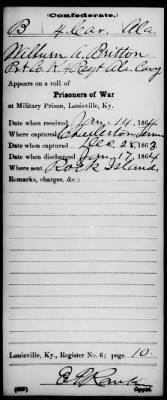 (Confederate.)
B 4 Cav. Ala
Wilburn A. Britton
Pvt Co. K, 4 Regt Ala. Cavy
Appears on a roll of
Prisoners of War
at Military Prison, Louisville, Ky.
Date when received Jan. 14, 1864
Where captured Charleston Tenn
Date when captured Dec. 28, 1863
Date when discharged Jan. 17, 1864
Where sent Rock Island
Remarks, charges, &c.:
Louisville, Ky., Register No. 6; page 10.
(639)
Copyist.